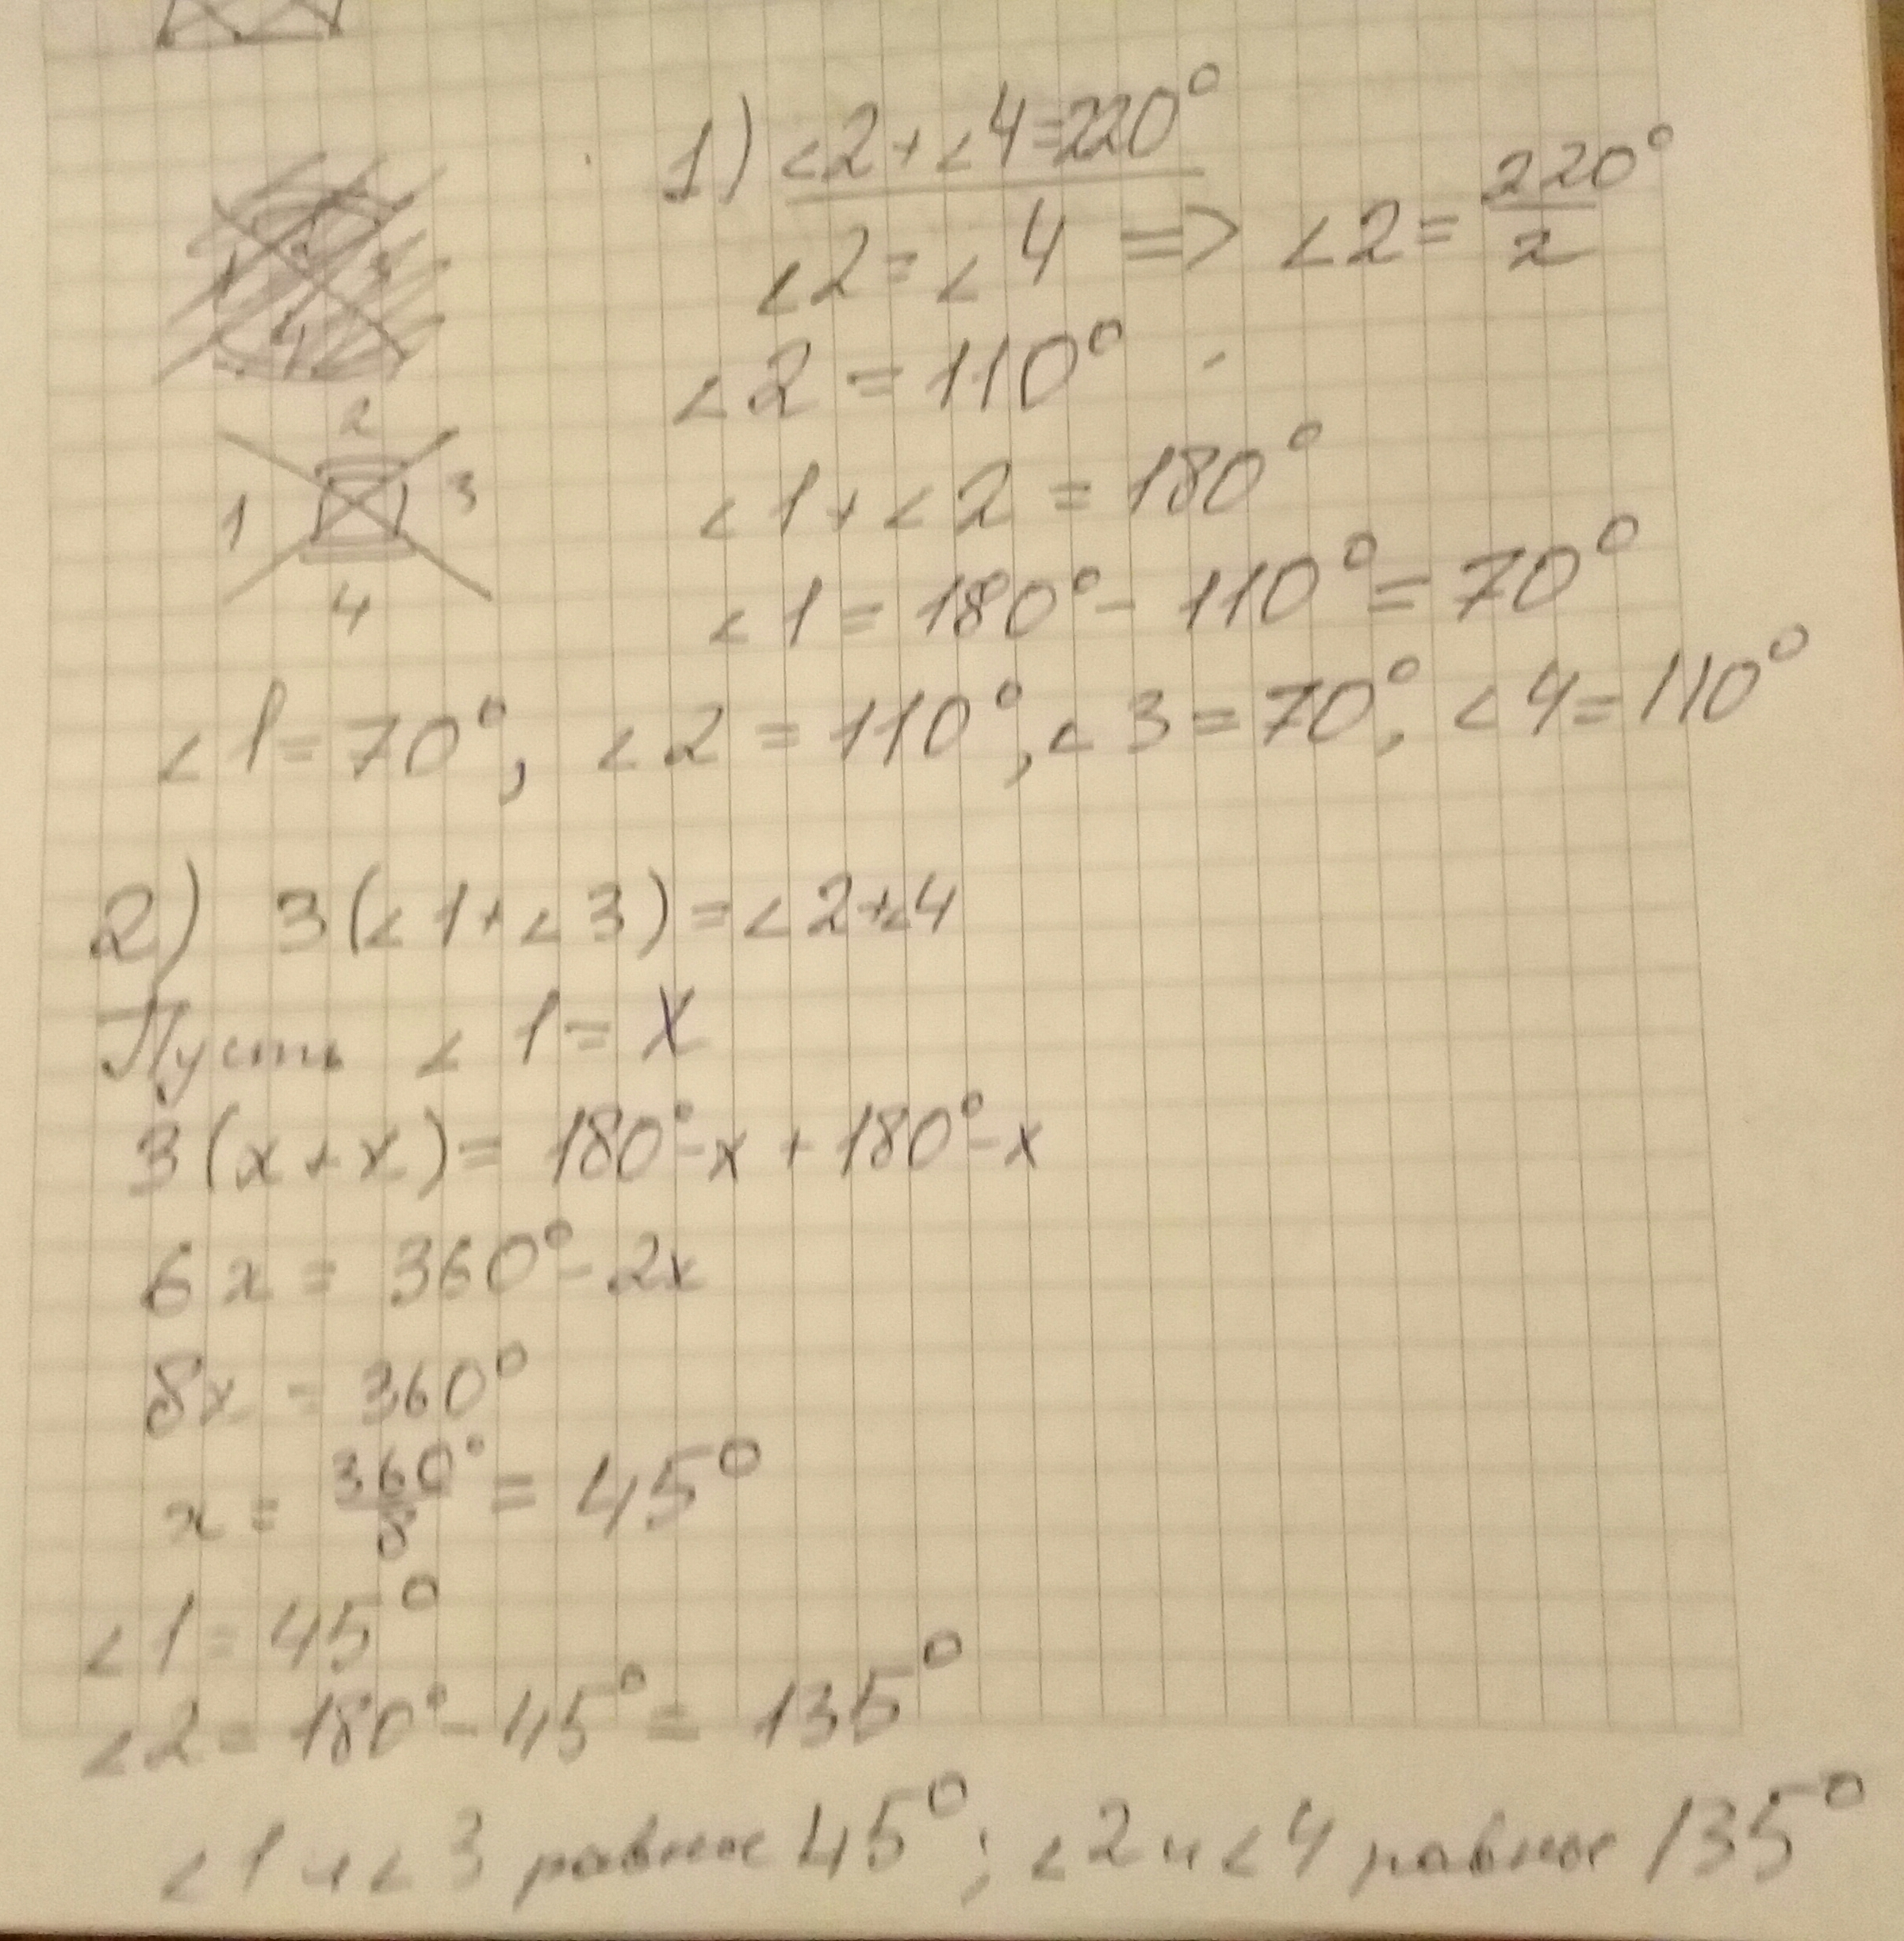 1) <2+<4=220°
<2=<4 => <2= 220°/2
<2 = 110°
<1+<2 = 180°
<1= 180°- 110°= 70°
2
1 3
4
<1= 70°; <2 = 110°; <3 = 70°; <4=110°
2) 3(<1+<3)=<2+<4
Пусть <1= x
3(x+x)= 180°-x + 180°-x
6x = 360°-2x
8x = 360°
x = 360°/8 = 45°
<1= 45°
<2= 180°- 45°= 135°
<1 и <3 равны 45°; <2 и <4 равны 135°